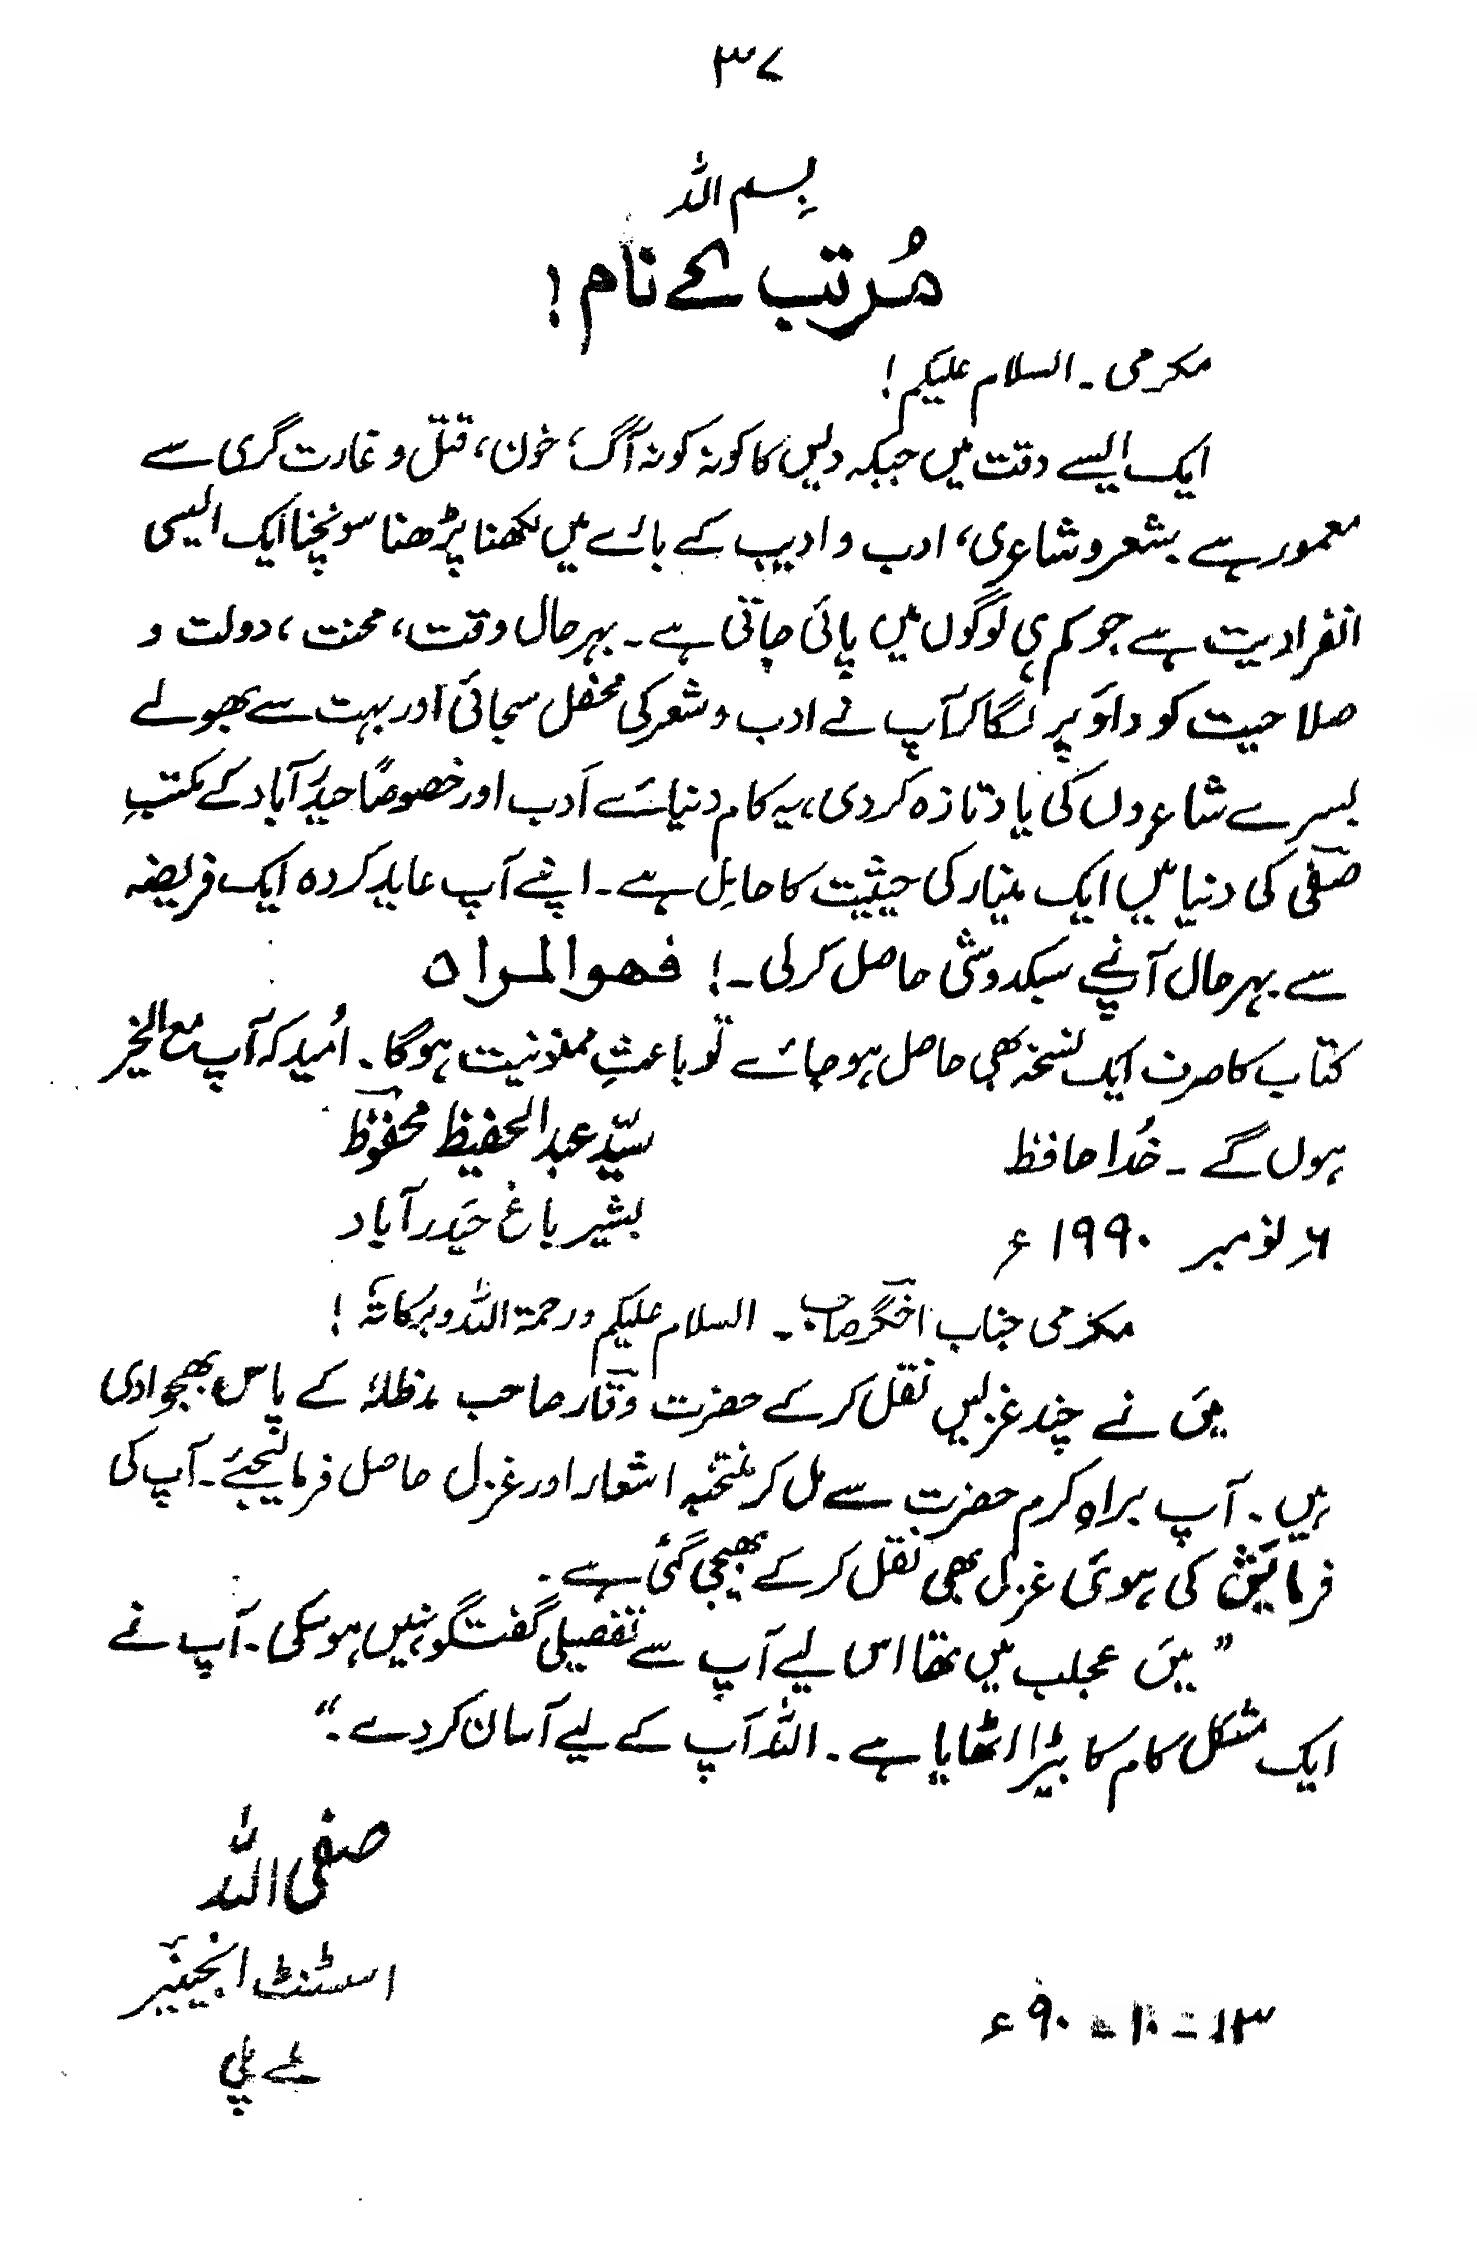 ۳۷
بِسم اللہ
مُرتب کے نام!
مکرمی ۔ السلام علیکم!
ایک ایسے وقت میں جبکہ دیس کا کونہ کونہ آگ، خون، قتل و غارت گری سے
معمور ہے شعر و شاعری، ادب و ادیب کے بارے میں لکھنا پڑھنا سونچنا ایک ایسی
انفرادیت ہے جو کم ہی لوگوں میں پائی جاتی ہے۔ بہر حال وقت، محنت، دولت و
صلاحیت کو داؤ پر لگا کر آپ نے ادب و شعر کی محفل سجائی اور بہت سے بھولے
بسرے شاعروں کی یاد تازہ کر دی، یہ کام دنیائے اَدب اور خصوصاً حیدرآباد کے مکتبِ
صفی کی دنیا میں ایک مینار کی حیثیت کا حامِل ہے۔ اپنے آپ عاید کردہ ایک فریضہ
سے بہر حال آپنے سبکدوشی حاصل کرلی ۔! فھو المراہ
کتاب کا صرف ایک نسخہ بھی حاصل ہو جائے تو باعثِ ممنونیت ہوگا۔ اُمید کہ آپ مع الخیر
ہوں گے ۔ خُدا حافظ
سیّد عبد الحفیظ محفوظ
۶؍ نومبر ۱۹۹۰ ء
بشیر باغ حیدرآباد
مکرمی جناب اخگر صاحب ۔ السلام علیکم ورحمۃ اللہ وبرکاتہٗ!
میں نے چند غزلیں نقل کر کے حضرت وقار صاحب مدظلہٗ کے پاس بھجوا دی
ہیں ۔ آپ براہِ کرم حضرت سے مل کر منتخبہ اشعار اور غزل حاصل فرما لیجئے۔ آپ کی
فرمائش کی ہوئی غزل بھی نقل کر کے بھیجی گئی ہے ۔
” میں عجلب میں تھا اس لیے آپ سے تفصیلی گفتگو نہیں ہو سکی۔ آپ نے
ایک مشکل کام کا بیڑا اٹھایا ہے۔ اللہ آپ کے لیے آسان کر دے۔“
صفی اللہ
اسٹنٹ انجینیر
۱۳ - ۱۰ - ۹۰ ء